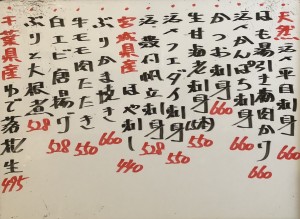 天然 活〆平目刺身 660
はも湯引き梅肉かけ 660
活〆かんぱち刺身 660
かつお刺身 660
生甘海老刺身(5本) 550
活〆フエダイ刺身 550
活〆帆立刺身 528
宮城県産 ほや刺し 440
ぶりかま焼き 660
牛モモ肉たたき 550
白エビ唐揚げ 528
ぶりと大根煮 528
千葉県産 ゆで落花生 495